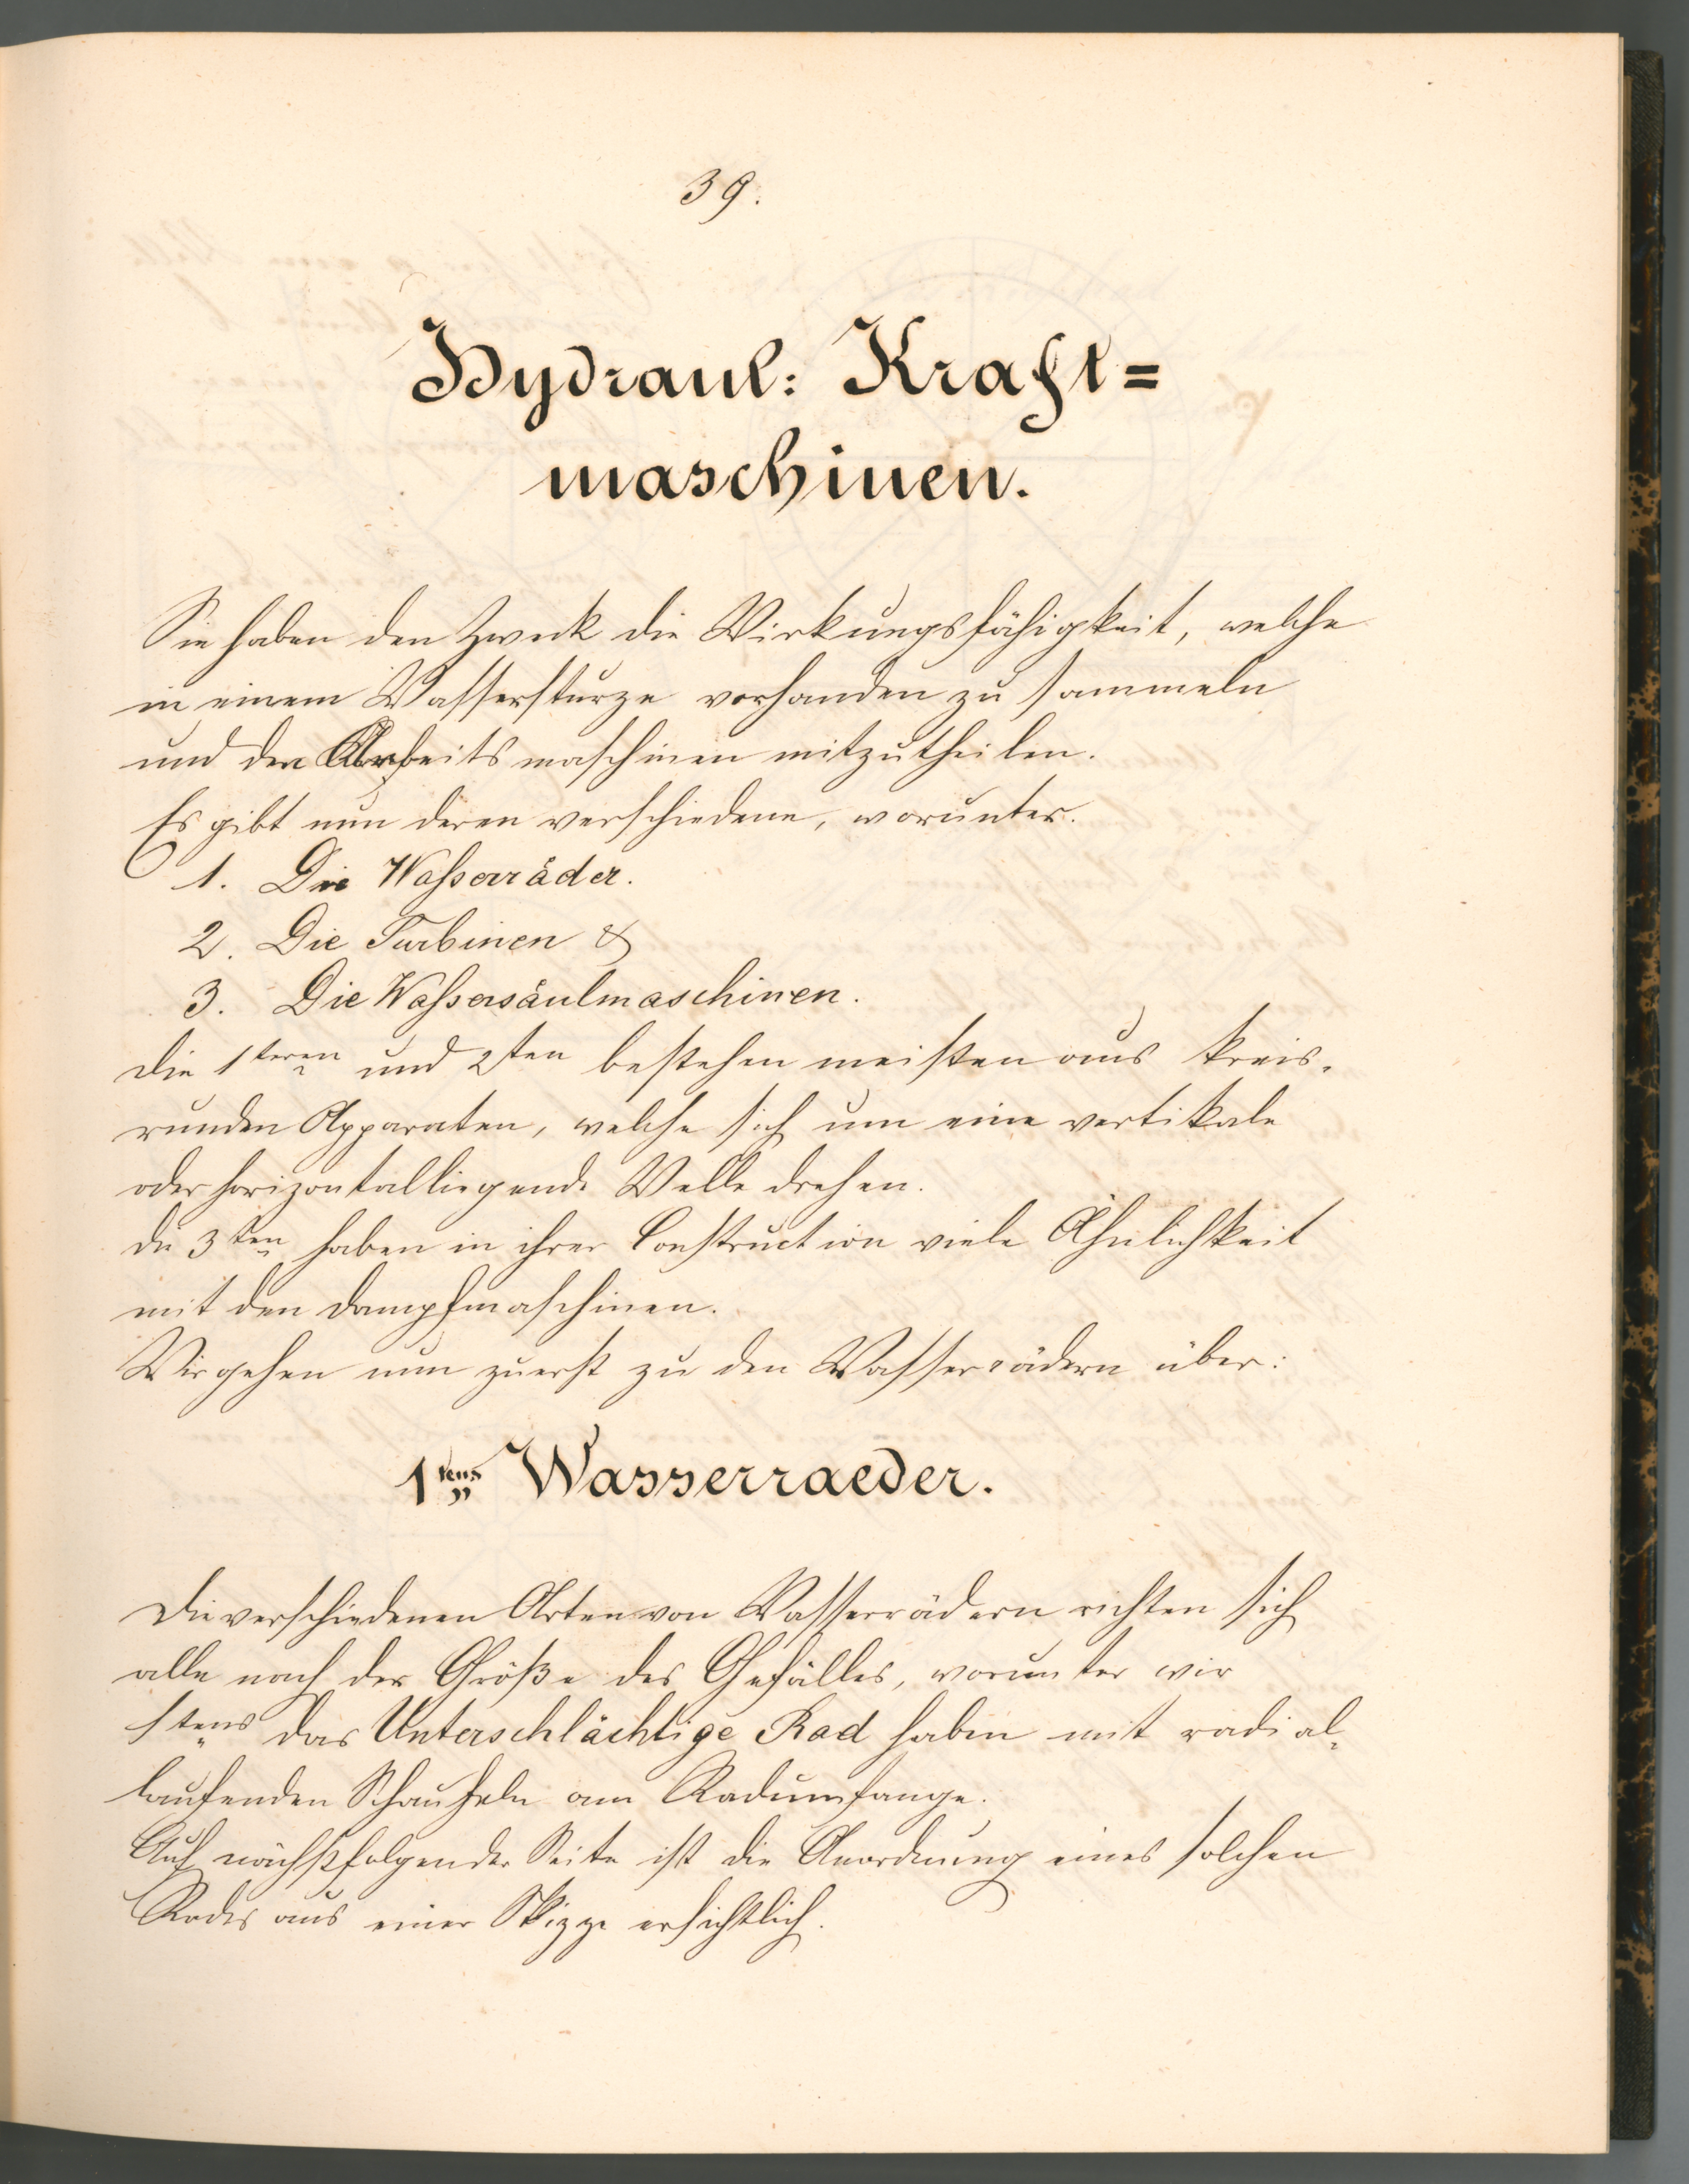 39.
Hydraul: Kraft=
maschinen.
Sie haben den Zweck die Wirkungsfähigkeit, welche
in einem Wassersturze vorhanden zu sammeln
und den Arbeitsmaschinen mitzutheilen.
Es gibt nun deren verschiedene, worunter.
1. Die Waßerräder.
2. Die Turbinen &
3. Die Waßersäulmaschinen.
Die 1teren und 2ten bestehen meisten aus kreis-
runden Apparaten, welche sich um eine vertikale
oder horizontalliegende Welle drehen.
Die 3ten haben in ihrer Construction viele Ähnlichkeit
mit den Dampfmaschinen.
Wir gehen nun zuerst zu den Wasserrädern über:
1tens Wasserraeder.
Die verschiedenen Arten von Wasserrädern richten sich
alle nach der Größe des Gefälles, worunter wir
1tens das Unterschlächtige Rad haben mit radial-
laufenden Schaufeln am Radumfange.
Auf nächstfolgender Seite ist die Anordnung eines solchen
Rades aus einer Skizze ersichtlich.